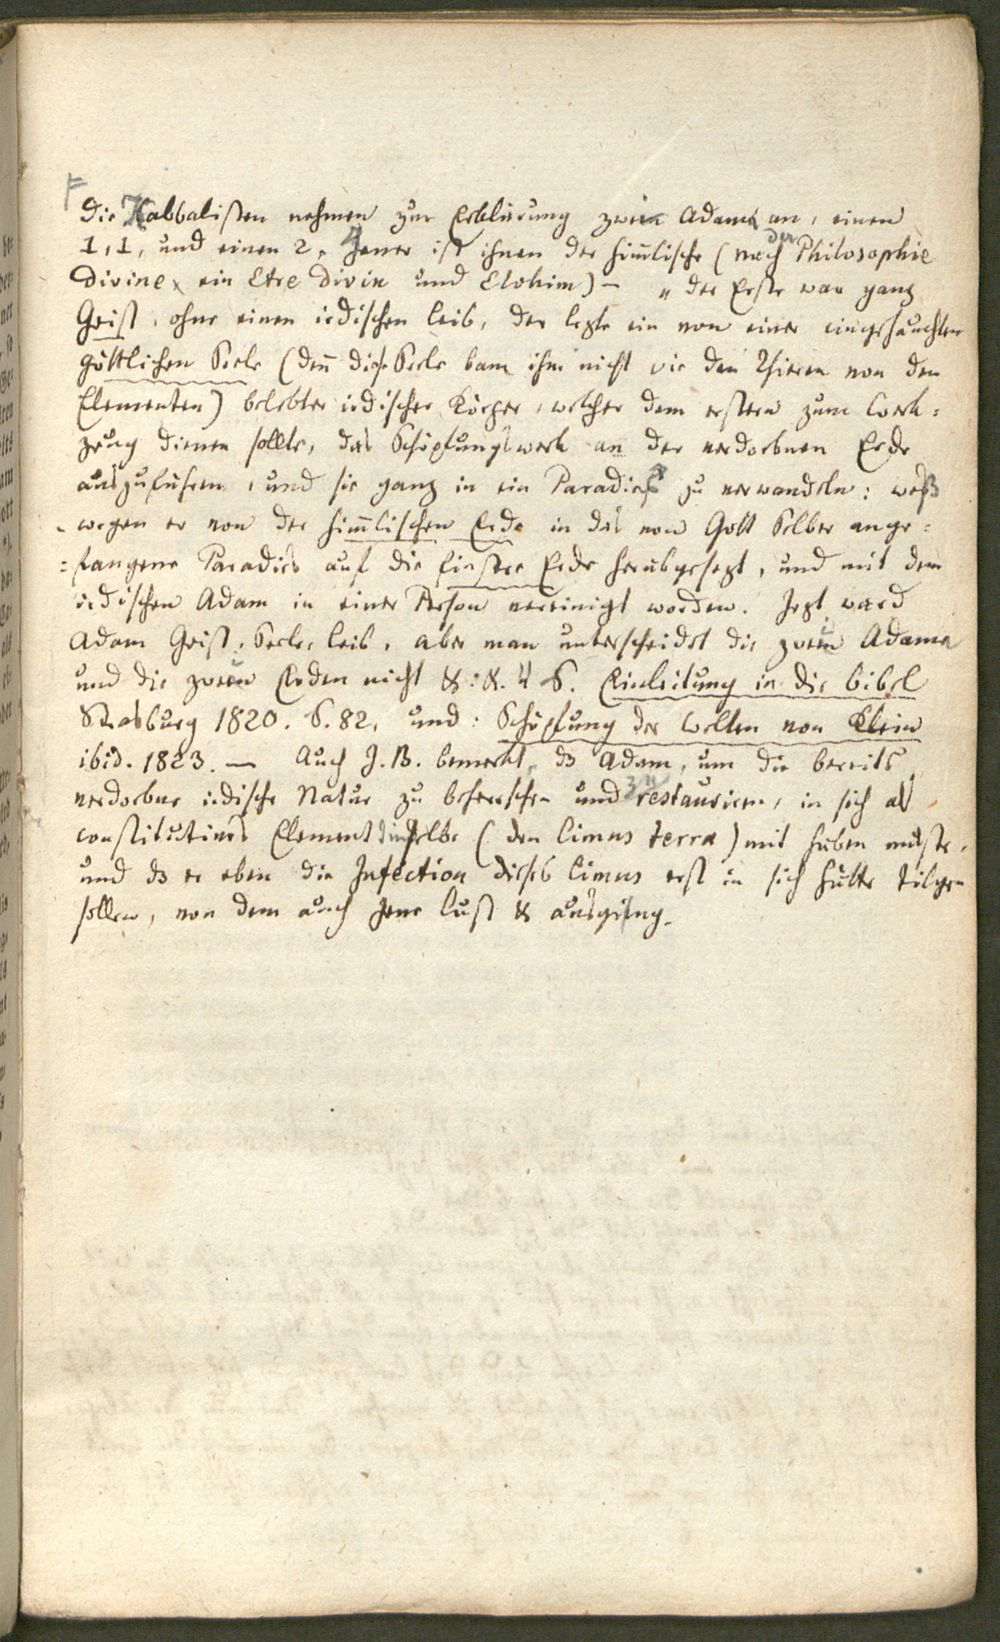 F
Die Kabbalisten nehmen zur Erklärung zween Adame an, einen
1, 1, und einen 2. Jener ist ihnen der him̅lische (nach der Philosophie
Divine ein Etre Divin und Elohim) — „ der Erste war ganz
Geist, ohne einen irdischen Leib, der lezte ein von einer eingehauchten
göttlichen Seele (den̅ diese Seele kam ihm nicht wie den Thieren von den
Elementen) belebter irdischer Körper, welcher dem erstern zum Werk-
zeug dienen sollte, das Schöpfungswerk an der verdorbnen Erde
auszuführen, und sie ganz in ein Paradies zu verwandeln: weß-
-wegen er von der him̅lischen Erde in das von Gott selber ange-
-fangene Paradies auf die finstre Erde herabgesezt, und mit dem
irdischen Adam in einer Person vereinigt worden. Jezt ward
Adam Geist, Seele, Leib, aber man unterscheidet die zween Adame
und die zween Erden nicht &: &. “ S. Einleitung in die Bibel
Strasburg 1820. S. 82, und: Schöpfung der Welten von Klein
ibid. 1823. — Auch J. B. bemerkt, ds Adam, um die bereits
verdorbne irdische Natur zu beherrschen und zu restauriren, in sich als
constitutives Element dieselbe (den Limus terrae) mit haben mußte,
und ds er eben die Infection dieses Limus erst in sich hätte tilgen
sollen, von dem auch jene Lust & ausging.